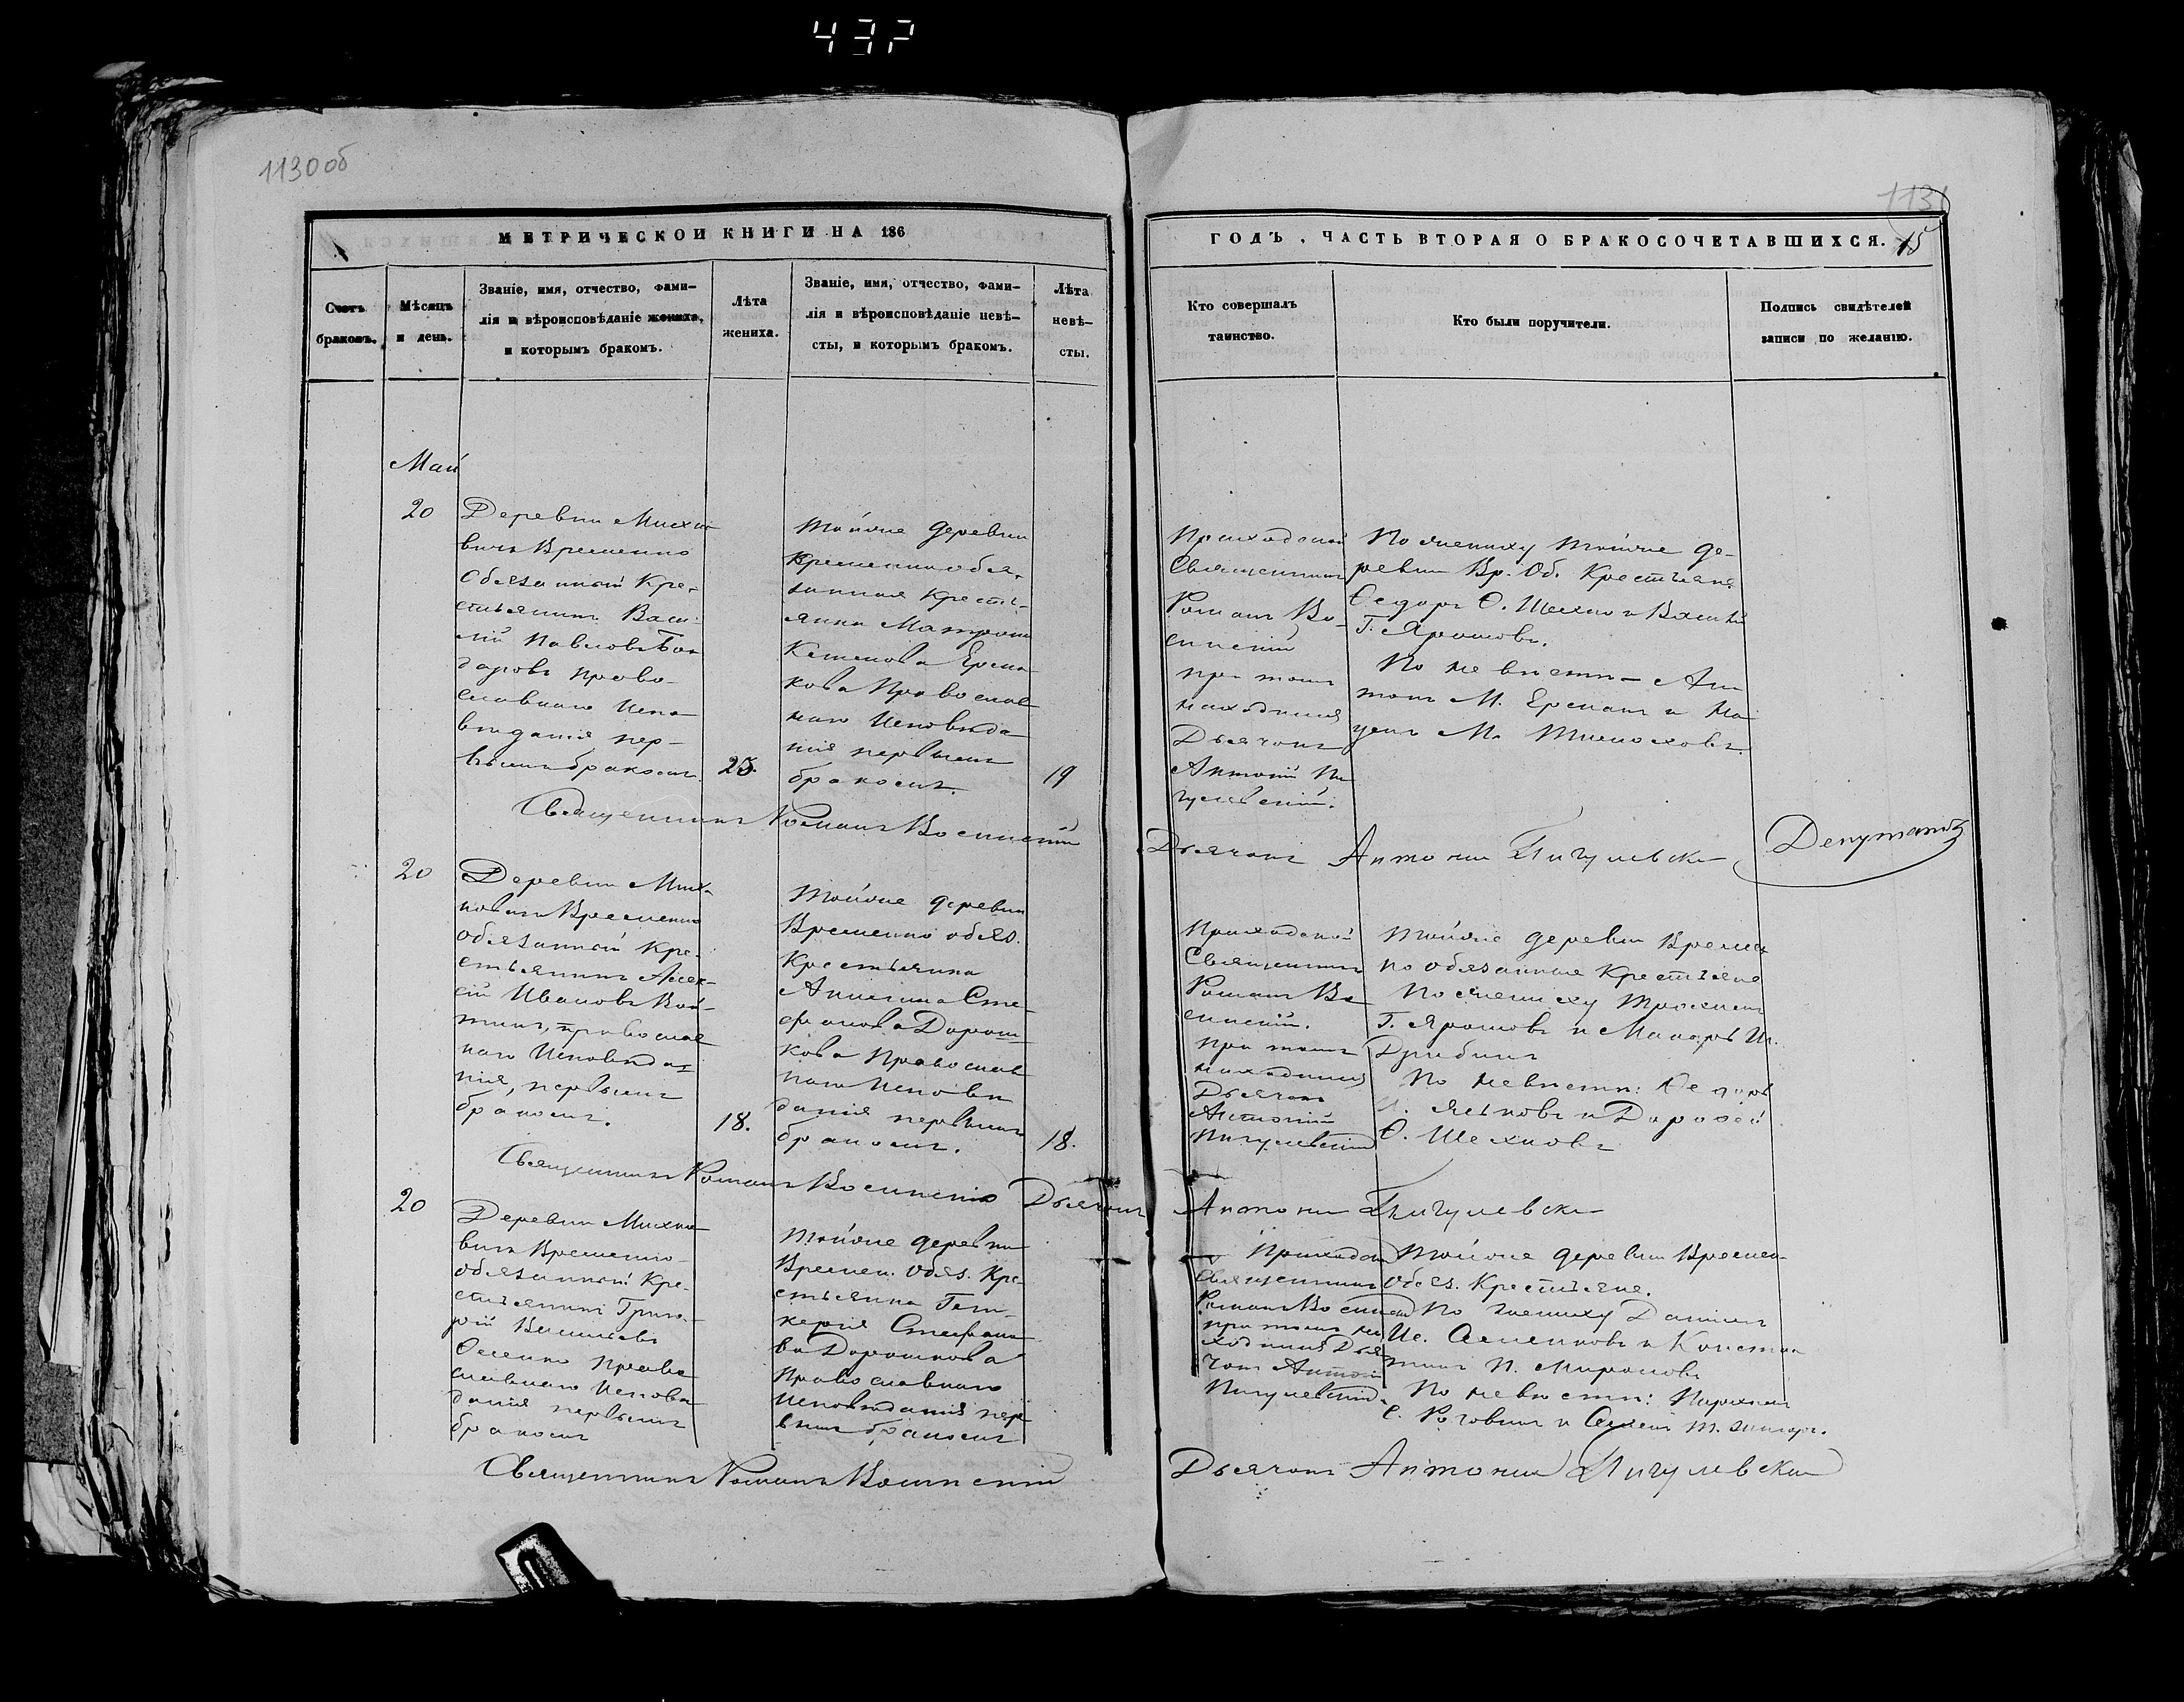 437
1130об
1131
МЕТРИЧЕСКОЙ КНИГИ НА 186
Счетъ
браковъ.
Мѣсяцъ
и день.
Званіе, имя, отчество, фами-
лія и вѣроисповѣданіе жениха,
и которымъ бракомъ.
Лѣта
жениха.
Званіе, имя, отчество, фами-
лія и вѣроисповѣданіе невѣ-
сты, и которымъ бракомъ.
Лѣта
невѣ-
сты.
ГОДЪ, ЧАСТЬ ВТОРАЯ О БРАКОСОЧЕТАВШИХСЯ.
15
Кто совершалъ
таинство.
Кто были поручители.
Подпись свидѣтелей
записи по желанію.
Май
20
Деревни Михно
вичъ Временно
Обязанный Кре-
стьянинъ Васи-
лій Павловъ Бон
даровъ Право-
славнаго Испо
вѣданія пер-
вымъ бракомъ.
25.
Тойже деревни
Временнообя-
занная Кресть-
янка Матрона
Ермо
кова Православ
наго Исповѣда
нія первымъ
бракомъ.
19
Приходской
Священникъ
Романъ Во-
синскій
при томъ
находился
Дьячокъ
Антоній Пи
гулевскій.
По жениху тойже де-
ревни Вр. Об. Крестьяне
Ѳедоръ Ѳ. и Василій
Г. Ярошовъ.
По невѣсти – Ан
тонъ М. Ермакъ и
М. Тимоховъ.
Священникъ Романъ Восинскій
Дьячокъ Антоній Пигулевскі
Депутатъ
20
Деревни Мих-
новичъ Временно
обязанный Кре-
стьянинъ Алек-
сій Ивановъ Вой-
тинъ, православ
наго Исповѣда-
нія, первымъ
бракомъ.
18.
Тойже деревни
Временно обяз.
Крестьянка
Анисима Сте-
фанова Дорош-
кова Православ
наго Исповѣ
данія первымъ
бракомъ.
18.
Приходской
Священникъ
Романъ Во
синскій.
при томъ
находился
Дьячокъ
Антоній
Пигулевскій
Тойже деревни Времен
но обязанные Крестьяне
По жениху Трохимъ
Г. Ярошовъ и Макаръ И.
Дрибинъ
По невѣсти: Ѳедоръ
Яськовъ и Дороѳей
Ѳ. Шехновъ
Священникъ Романъ Восинскій Дьячокъ Антоній Пигулевскі
20
Деревни Михно
вичъ Временно-
обязанный Кре-
стьянинъ Григо-
рій Васильевъ
Право
славнаго Исповѣ
данія первымъ
бракомъ
Тойже деревни
Времен. Обяз. Кре-
стьянка Гли-
керія Стефано
ва Дорошкова
Православнаго
Исповѣданія пер
вымъ бракомъ
Приходск
Священникъ
Романъ Восинскій
при томъ на
ходился Дья
чокъ Антоній
Пигулевскій.
Тойже деревни Времен-
Обяз. Крестьяне.
По жениху Даніилъ
и Констан
тинъ П. Мироновъ
По невѣсти:
С. Роговинъ и
Священникъ Романъ Восинскій
Дьячокъ Антоній Пигулевскі